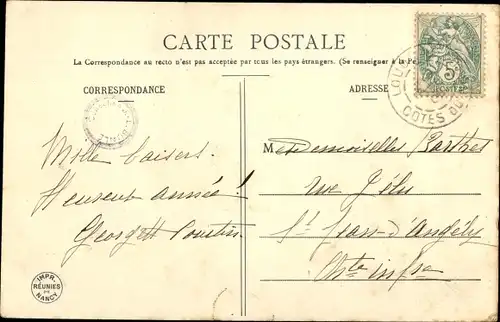 CARTE POSTALE
La Correspondance au recto n'est pas acceptée par tous les pays étrangers. (Se renseigner à la
CORRESPONDANCE
ADRESSE
5
COTES DU
Mille baisers.
Heureuse année !
Georgett
Mesdemoiselles Barthet
rue Jélu
St Jean-d'Angély
Chte infre
IMPR.
RÉUNIES
DE
NANCY